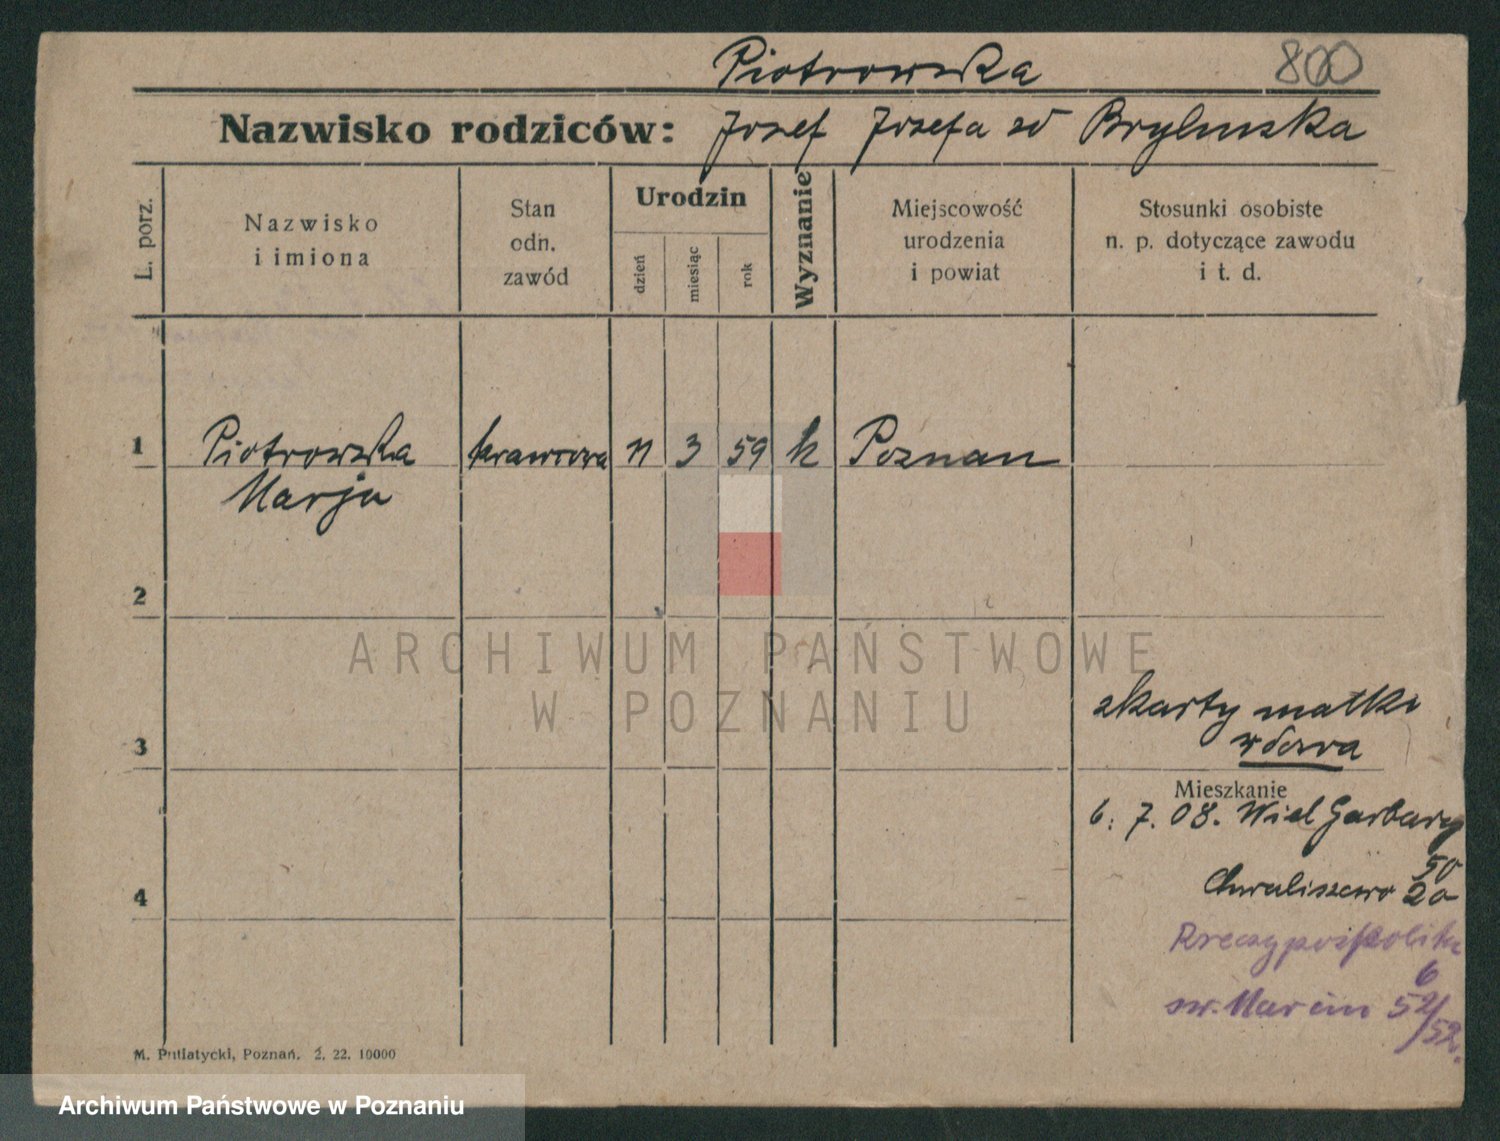 Piotrowska 800
Nazwisko rodziców: Jozef Jozefa zd Brylinska
L. porz.
Nazwisko
i imiona
Stan
odn.
zawód
Urodzin
dzień
miesiąc
rok
Wyznanie
Miejscowość
urodzenia
i powiat
Stosunki osobiste
n. p. dotyczące zawodu
i t. d.
1 Piotrowska krawcowa 11 3 59 k Poznan
Marja
2
ARCHIWUM PAŃSTWOWE
W POZNANIU
zkarty matki
3 wdowa
Mieszkanie
6. 7. 08. Wiel Garbary
50
4 Chwaliszewo 20
Rzeczypospolita
6
sw. Marcin 52/52.
M. Putiatycki, Poznań. 2. 22. 10000
Archiwum Państwowe w Poznaniu